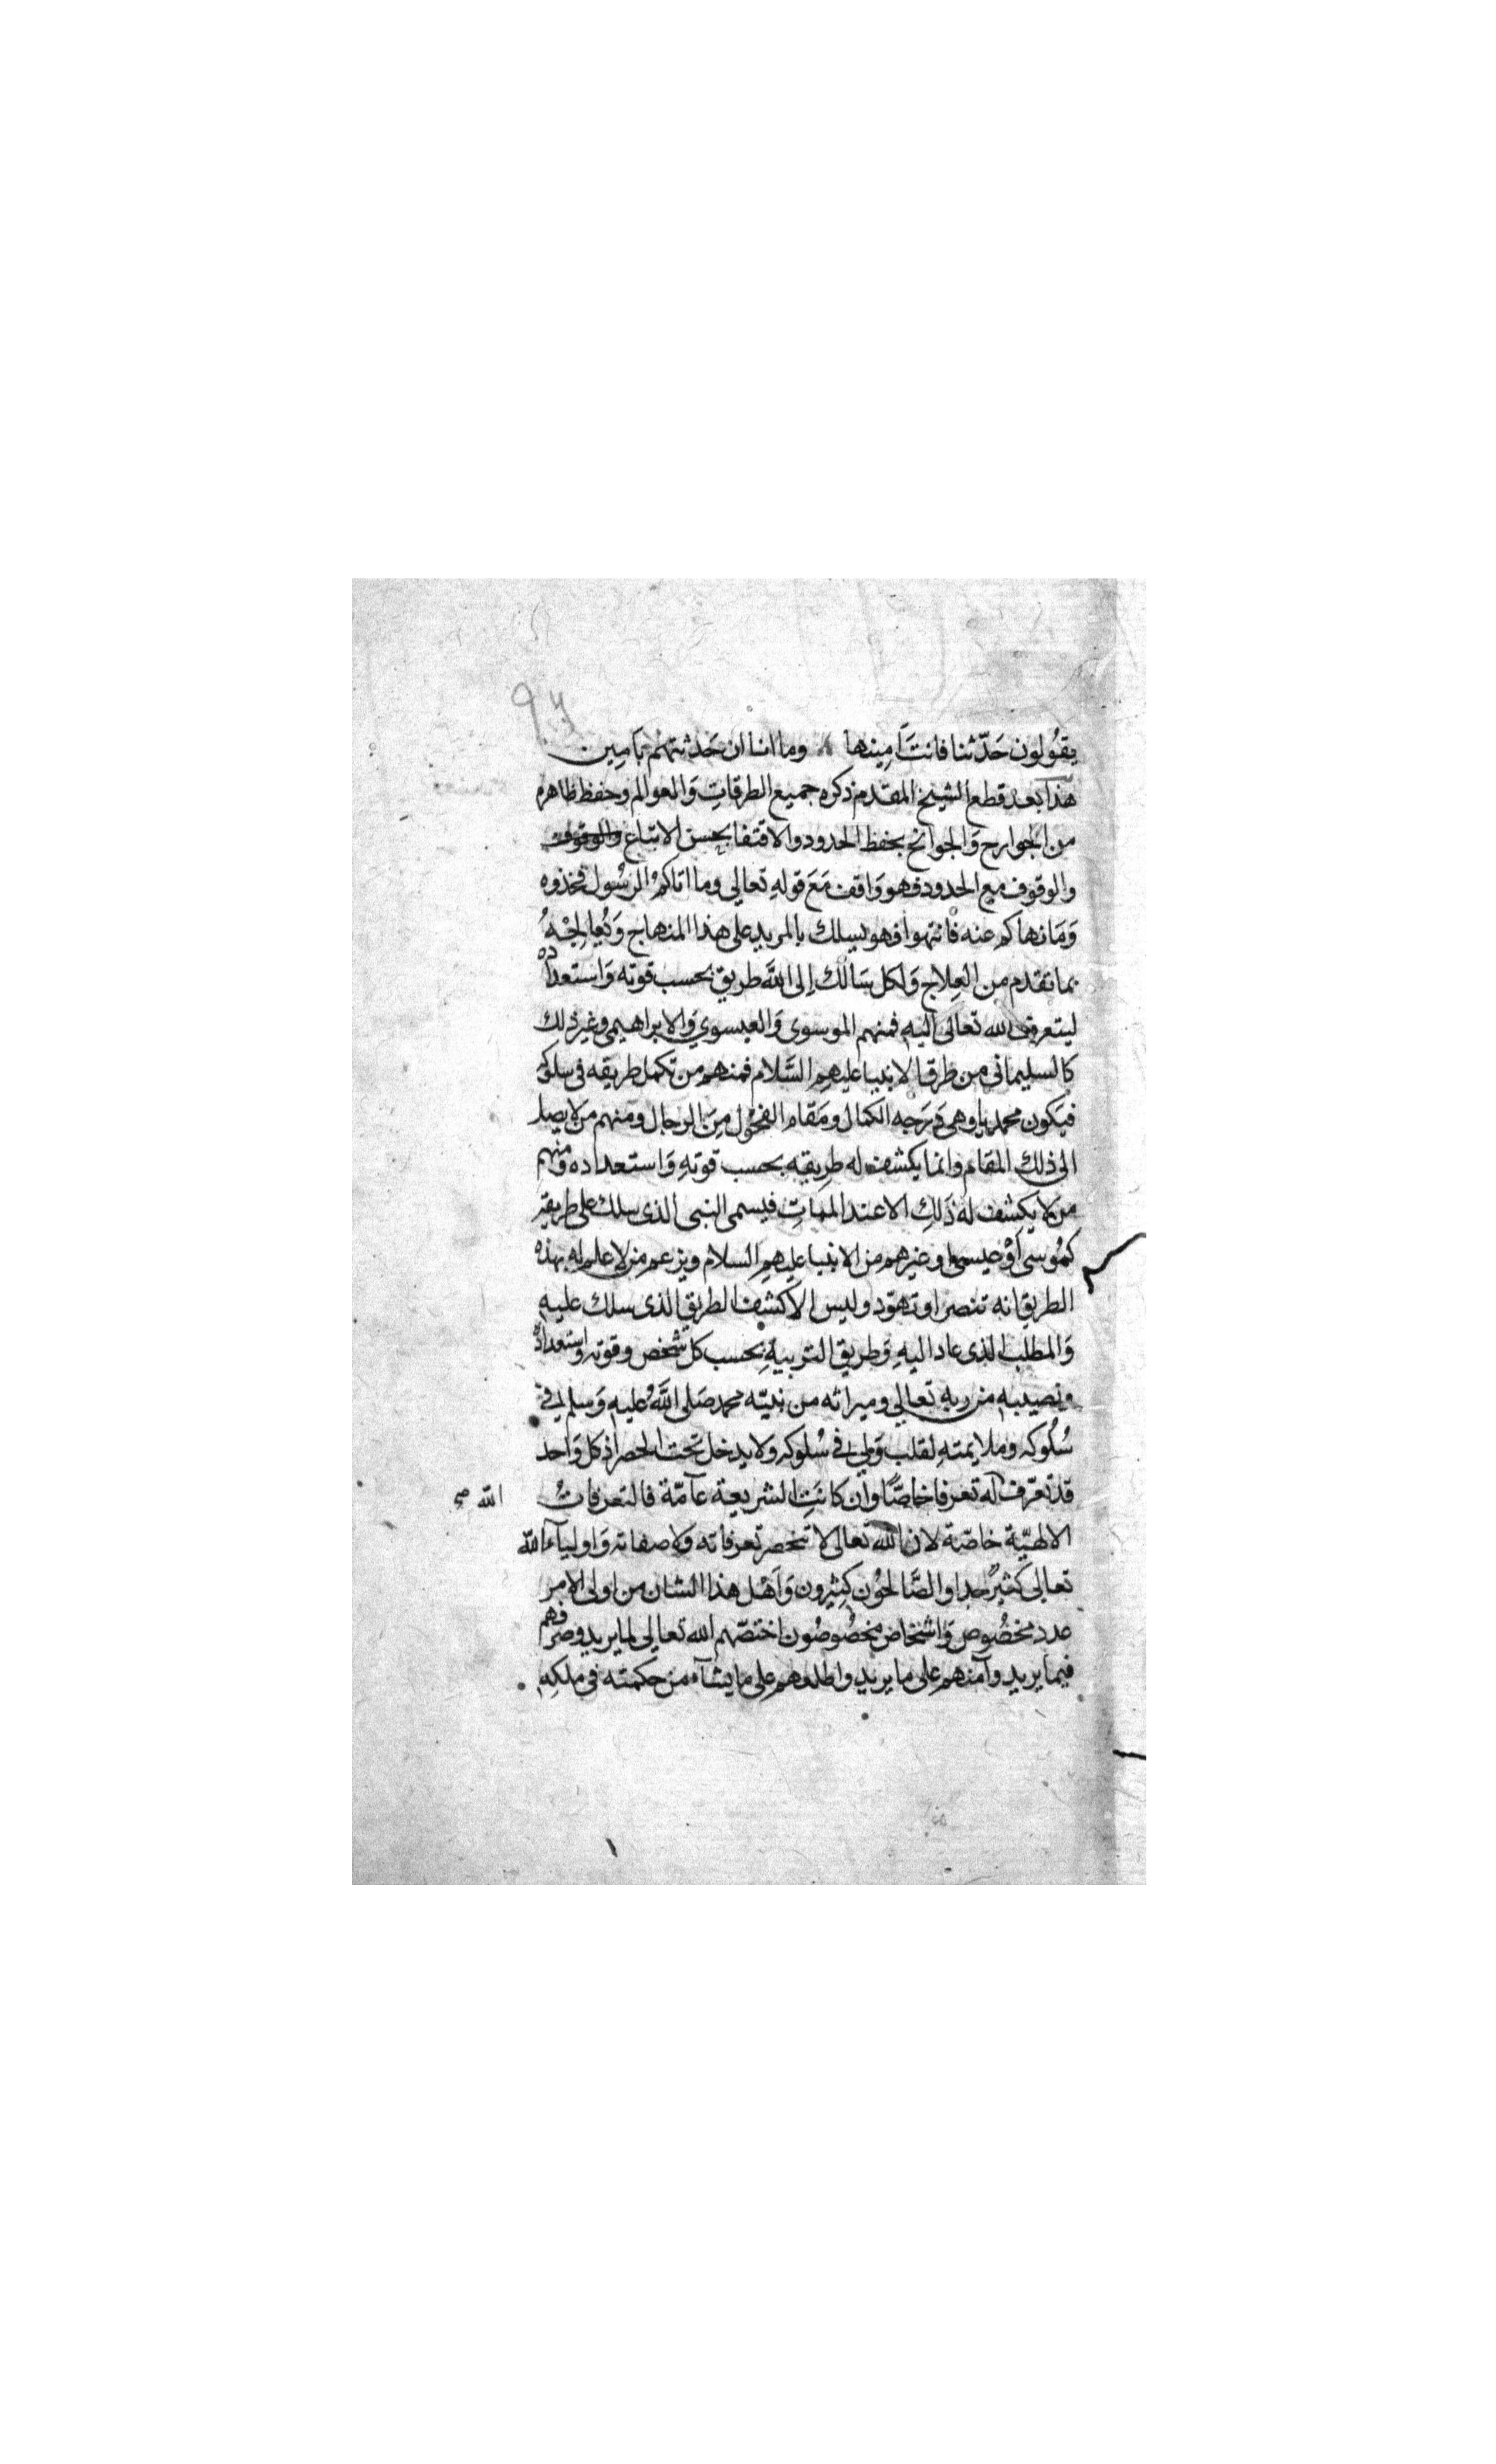 ٩٧
يقُولون حَدّثنا فانتَ اَمِينها وما انا ان حَدثتهم بأمِين
هذا بعد قطع الشيخ المقدم ذكره جميع الطرقاتِ وَالعوالم وحفظ ظاهره
من الجوارح وَالجوانح بحفظ الحدود والاقتفا بحسن الاتباع والوقوف
والوقوف مع الحدود فهو وَاقف مَعَ قولهِ تعالى وما اتاكمُ الرسُول فخذوه
وَمَا نهاكم عنه فانتهوا فهو يسلك بالمريد على هذا المنهاج وَيُعالجهُ
بما تقدم من العِلاج وَلكل سَالك اِلى اللهَ طريق بحسب قوته وَاستعداده
ليتعرف الله تعالى اليهِ فمنهم الموسوى وَالعيسوي وَالابراهيمى وغير ذلك
كالسليمانى من طرق الانبيا عليهمِ السَّلام فمنهم من تكمل طريقه فى سلوكه
فيَكون محمديا وهى دَرَجه الكمال ومَقام الفحُول مِنَ الرجال ومنهم من لا يصل
الى ذلك المقام وانما يكشف له طريقه بحسب قوتهِ وَاستعداده ومنهم
من لا يكشف له ذَلِك الا عند المَماتِ فيسمى النبى الذى سلك على طريقه
كمُوسى أوْ عيسى او غيرهم من الانبيا عليهمِ السلام ويزعم من لا علم له بهذه
الطريق انه تنصر او تهوّد وليس الا كشف الطريق الذى سلك عليهِ
وَالمطلب الذى عاد اليهِ وَطريق التربيهِ بحسب كل شخص وقوته واستعداده
ونصيبهِ من ربهِ تعالى وميراثه من نبيّه محمد صَلى اللهُ عليهِ وَسلم في
سُلوكه وملايمتهِ لقلب وَلي في سُلوكه ولا يدخل تحت الحصر اذ كل وَاحد
قد تعرّف له تعرفا خاصًّا وان كانَتِ الشريعة عآمّة فالتعرفاتُ
الله صح
الالهيّة خاصّة لان الله تعالى لا تنحصر تعرفاته ولا صفاته وَاوليآء الله
تعالى كثيرٌ جدا والصَّالحُون كثيرون وَاَهْل هذا الشان من اولى الامر
عدد مخصُوص وَاشخاص مخصُوصُون اختصّهم الله تعالى لما يريد وصرفهم
فيما يريد وآمنهم على ما يريد واطلعهم على ما يشآء من حكمته فى ملكهِ